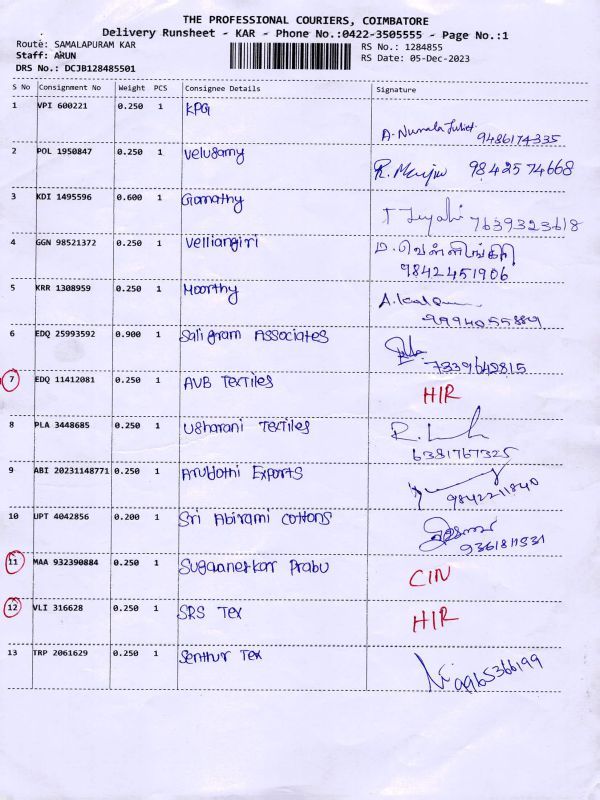 THE PROFESSIONAL COURIERS, COIMBATORE
Delivery Runsheet - KAR - Phone No.:0422-3505555 - Page No.:1
Route: SAMALAPURAM KAR
Staff: ARUN
DRS No.: DCJB128485501
RS No.: 1284855
RS Date: 05-Dec-2023
S No Consignment No Weight PCS Consignee Details Signature
1 VPI 600221 0.250 1 KPG
A. 9486174335
2 POL 1950847 0.250 1 Velusamy R. 98425 74668
3 KDI 1495596 0.600 1 Gomathy
T 7639323618
4 GGN 98521372 0.250 1 Velliangiri ம. வெள்ளியங்கிரி
9842451906
5 KRR 1308959 0.250 1 Moorthy
9994055889
6 EDQ 25993592 0.900 1 Saligram Associates
7339642815
7 EDQ 11412081 0.250 1 AVB Textiles HIR
8 PLA 3448685 0.250 1 Usharani Textiles R.
6381767325
9 ABI 20231148771 0.250 1 Exports
9842211840
10 UPT 4042856 0.200 1 Sri Abirami Cottons
9361811531
11 MAA 932390884 0.250 1 Prabu CIN
12 VLI 316628 0.250 1 SRS Tex HIR
13 TRP 2061629 0.250 1 Senthur Tex
9965366199